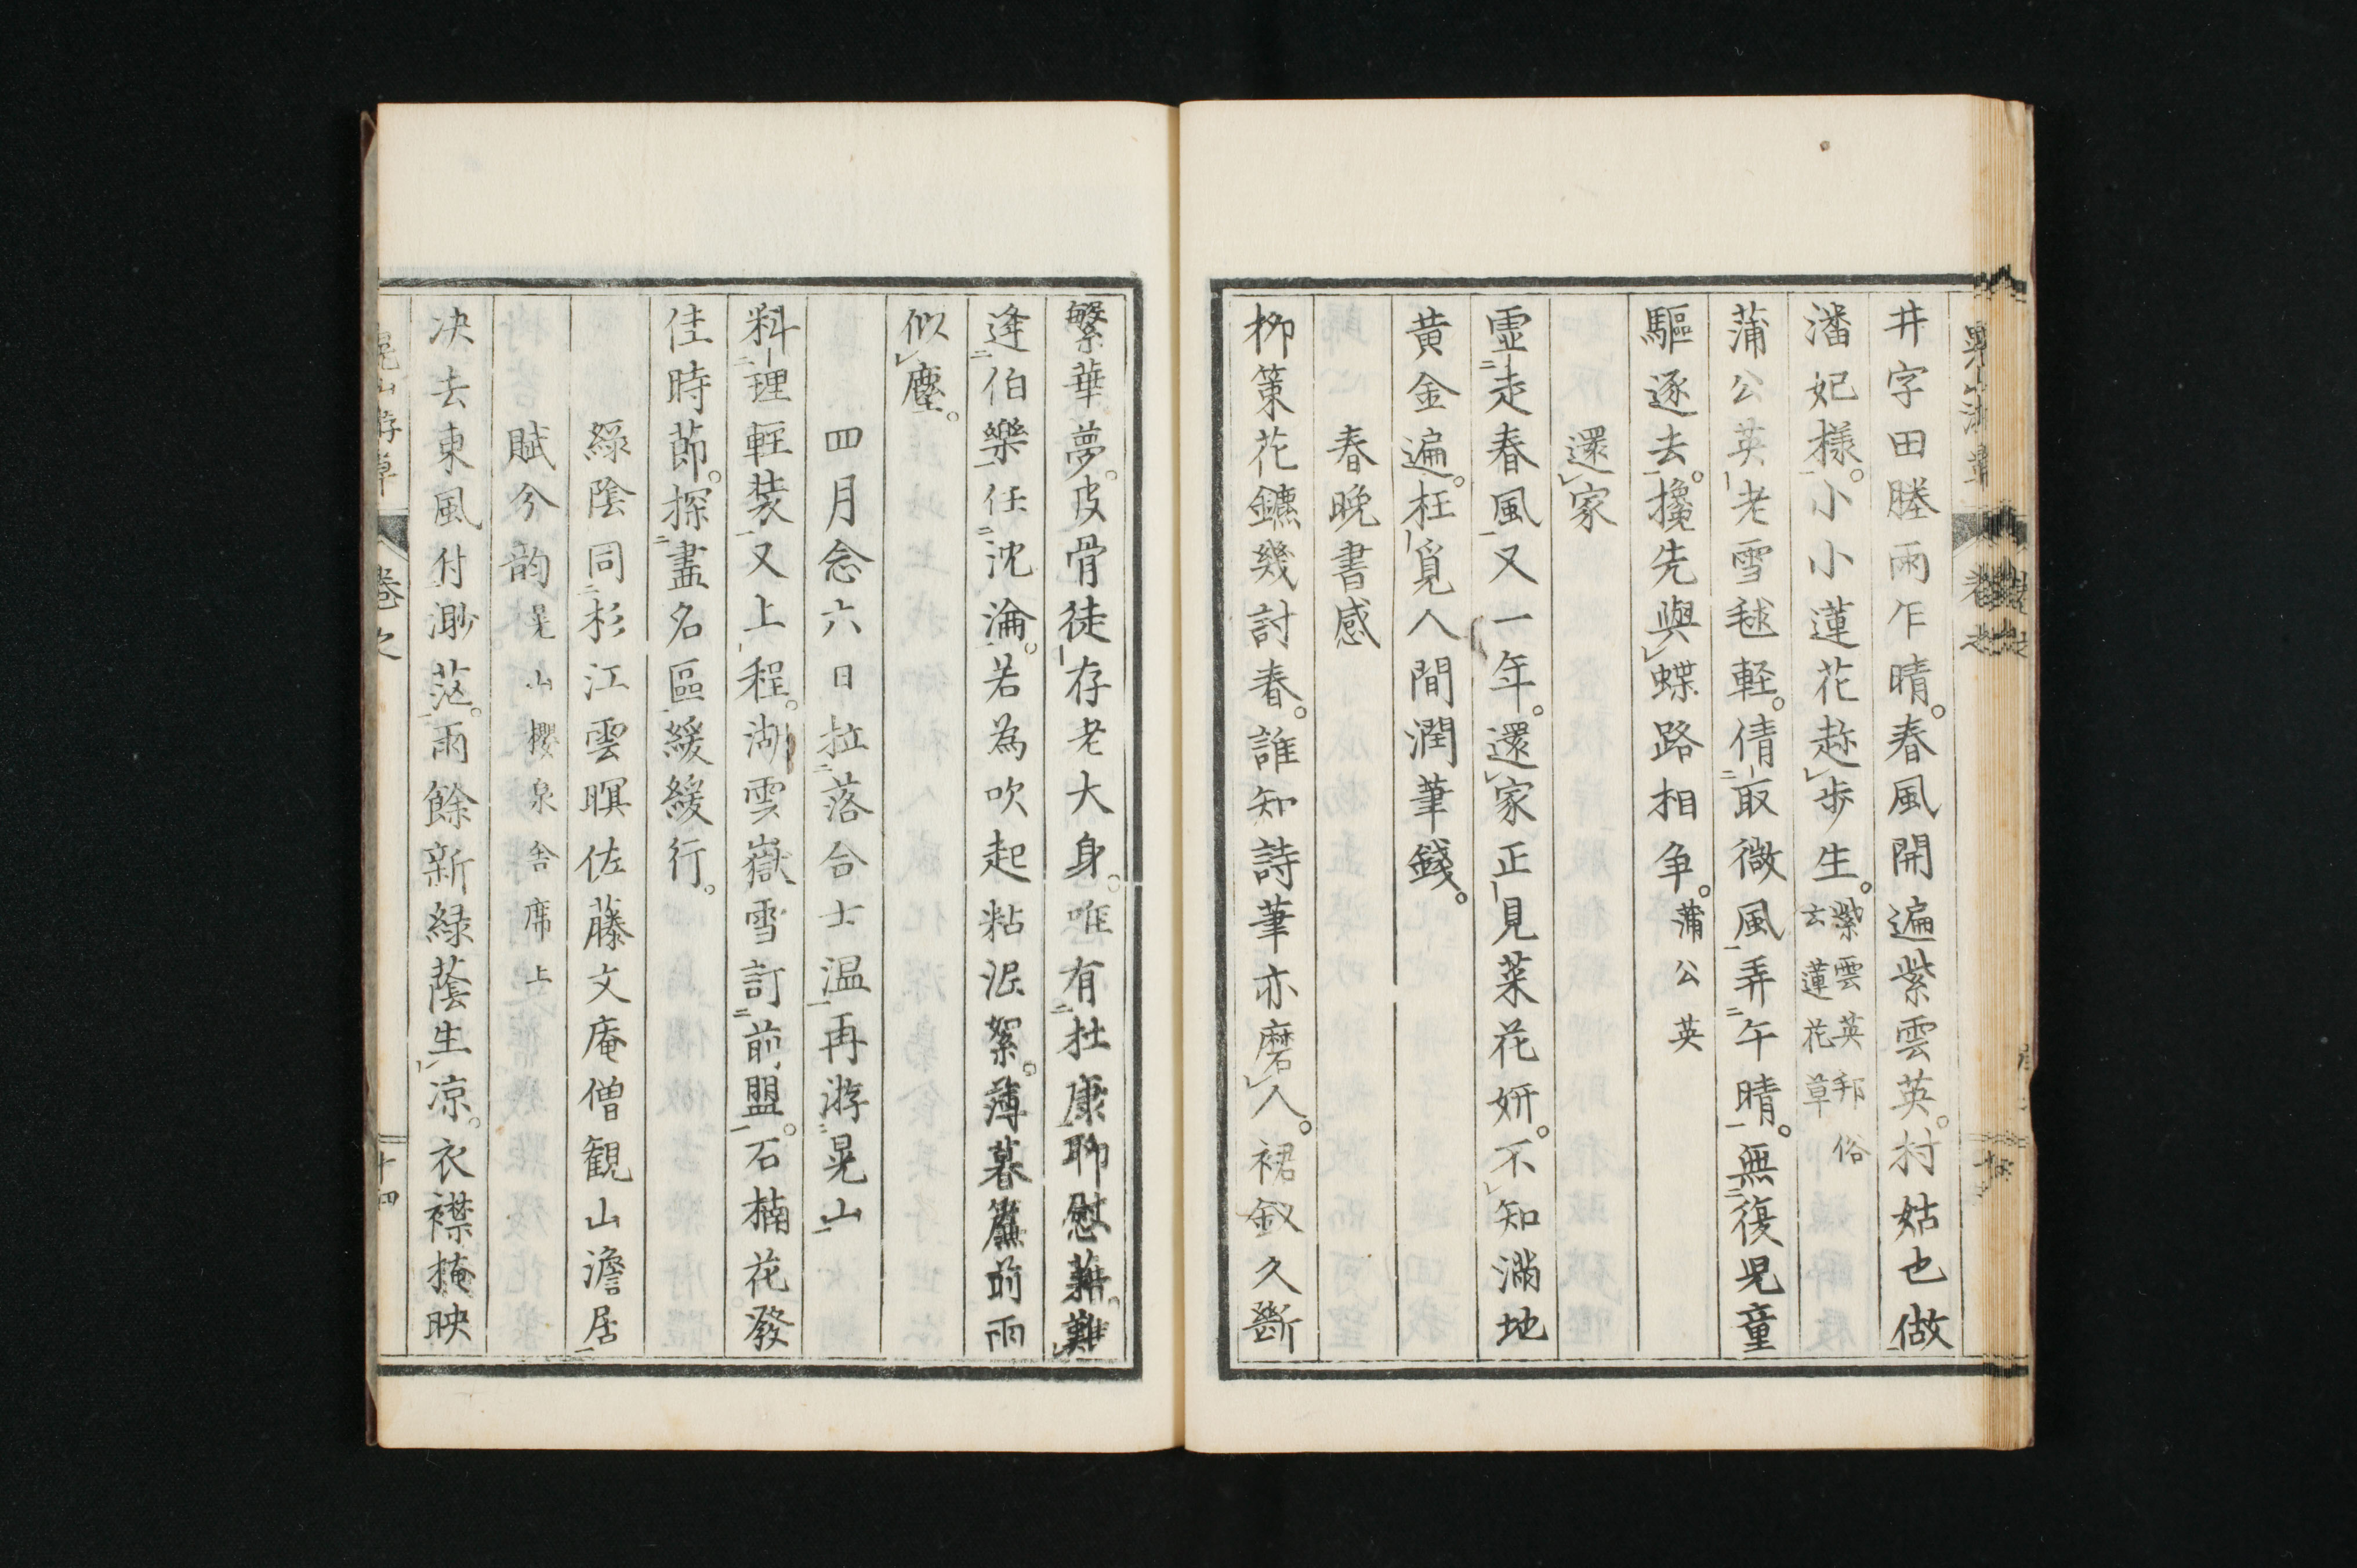 井字田塍雨乍晴。春風開遍紫雲英。村姑也做
潘妃樣。小小蓮花趂歩生。紫雲英邦俗
玄蓮花草
蒲公英老雪毬軽。倩取微風弄午晴。無復児童
驅逐去。攙先與蝶路相争。蒲公英
還家
虚走春風又一年。還家正見菜花妍。不知満地
黄金遍。枉覓人間潤筆錢。
春晩書感
柳策花鑣幾討春。誰知詩筆亦磨人。裙釵久斷
繁華夢。皮骨徒存老大身。唯有杜康聊慰藉。難
逢伯樂任沈淪。若為吹起粘泥絮。薄暮簾前雨
似塵。
四月念六日拉落合士温再游晃山
料理輕装又上程。湖雲嶽雪訂前盟。石楠花發
佳時節。探盡名區緩緩行。
綠陰同杉江雲暝佐藤文庵僧観山澹居
賦分韵晃山櫻泉舎席上
决去東風付渺茫。雨餘新緑蔭生凉。衣襟掩映
晃山游草
卷之
十四